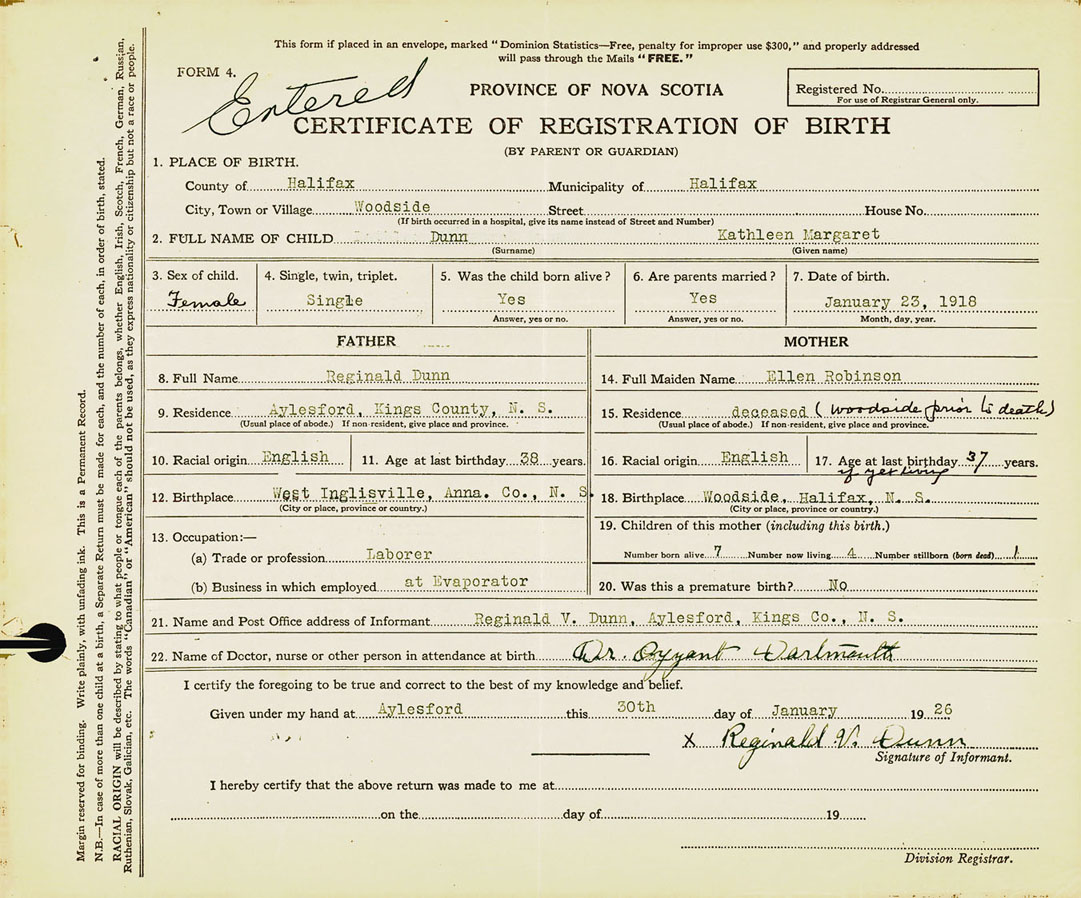 This form if placed in an envelope, marked "Dominion Statistics—Free, penalty for improper use $300," and properly addressed
will pass through the Mails "FREE."
FORM 4.
Entered
PROVINCE OF NOVA SCOTIA
Registered No.
For use of Registrar General only.
CERTIFICATE OF REGISTRATION OF BIRTH
(BY PARENT OR GUARDIAN)
1. PLACE OF BIRTH.
County of Halifax Municipality of Halifax
City, Town or Village Woodside Street House No.
(If birth occurred in a hospital, give its name instead of Street and Number)
2. FULL NAME OF CHILD Dunn Kathleen Margaret
(Surname) (Given name)
3. Sex of child. 4. Single, twin, triplet. 5. Was the child born alive? 6. Are parents married? 7. Date of birth.
Female Single Yes Yes January 23, 1918
Answer, yes or no. Answer, yes or no. Month, day, year.
FATHER MOTHER
8. Full Name Reginald Dunn 14. Full Maiden Name Ellen Robinson
9. Residence Aylesford, Kings County, N. S. 15. Residence deceased (Woodside prior to death)
(Usual place of abode.) If non-resident, give place and province. (Usual place of abode.) If non-resident, give place and province.
10. Racial origin English 11. Age at last birthday 38 years. 16. Racial origin English 17. Age at last birthday 37 years.
if yet living
12. Birthplace West Inglisville, Anna. Co., N. S. 18. Birthplace Woodside, Halifax, N. S.
(City or place, province or country.) (City or place, province or country.)
13. Occupation:— 19. Children of this mother (including this birth.)
(a) Trade or profession Laborer Number born alive 7 Number now living 4 Number stillborn (born dead) 1
(b) Business in which employed at Evaporator 20. Was this a premature birth? No
21. Name and Post Office address of Informant Reginald V. Dunn, Aylesford, Kings Co., N. S.
22. Name of Doctor, nurse or other person in attendance at birth Dr. Dartmouth
I certify the foregoing to be true and correct to the best of my knowledge and belief.
Given under my hand at Aylesford this 30th day of January 19 26
X Reginald V. Dunn
Signature of Informant.
I hereby certify that the above return was made to me at
on the day of 19
Division Registrar.
Margin reserved for binding. Write plainly, with unfading ink. This is a Permanent Record.
N.B.—In case of more than one child at a birth, a Separate Return must be made for each, and the number of each, in order of birth, stated.
RACIAL ORIGIN will be described by stating to what people or tongue each of the parents belongs, whether English, Irish, Scotch, French, German, Russian,
Ruthenian, Slovak, Galician, etc. The words "Canadian" or "American" should not be used, as they express nationality or citizenship but not a race or people.